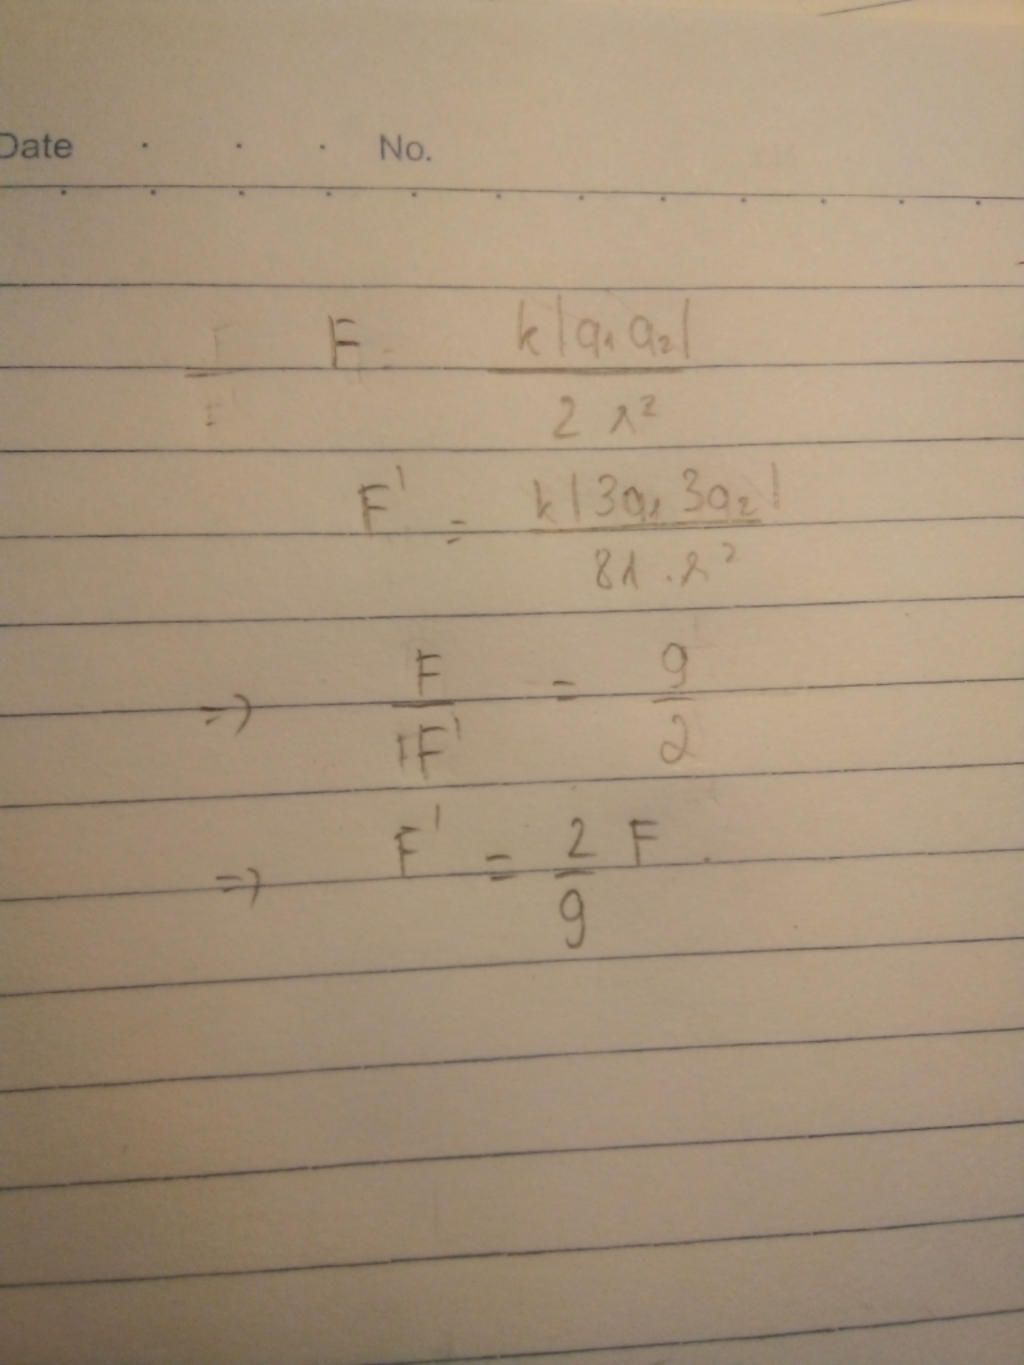 Date . . . No.
F = k|q₁ q₂| / 2 r²
F' = k|3q₁ 3q₂| / 81 . r²
=> F / F' = 9 / 2
=> F' = 2 / 9 F .